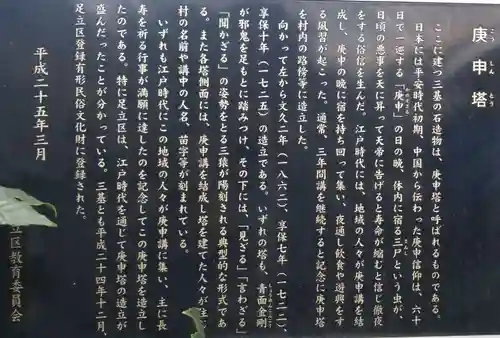 庚申塔
こうしんとう
ここに建つ三基の石造物は、庚申塔と呼ばれるものである。
日本には平安時代初期、中国から伝わった庚申信仰は、六十
日で一巡する「庚申」の日の晩、体内に宿る三尸という虫が、
日頃の悪事を天に昇って天帝に告げると寿命が縮むと信じ徹夜
をする俗信を生んだ。江戸時代には、地域の人々が庚申講を結
成し、庚申の晩に宿を持ち回って集い、夜通し飲食や遊興をす
る風習が起こった。通常、三年間講を継続すると記念に庚申塔
を村内の路傍等に造立した。
向かって左から文久二年(一八六二)、享保七年(一七二二)、
享保十年(一七二五)の造立である。いずれの塔も、青面金剛
が邪鬼を足もとに踏みつけ、その下には、「見ざる」「言わざる」
「聞かざる」の姿勢をとる三猿が陽刻される典型的な形式であ
る。また各塔側面には、庚申講を結成し塔を建てた人々が生
村の名前や講中の人名、苗字等が刻まれている。
いずれも江戸時代にこの地域の人々が庚申講に集い、主に長
寿を祈る行事が満願に達したのを記念してこの庚申塔を造立し
たのである。特に足立区は、江戸時代を通じて庚申塔の造立が
盛んだったことが分かっている。三基とも平成二十四年十二月、
足立区登録有形民俗文化財に登録された。
平成二十五年三月
立区教育委員会